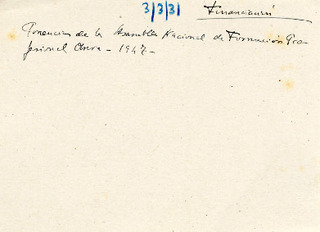 3/3/31
Financiación
Ponencias de la Asamblea Nacional de Formación Pro-
fesional Obrera - 1947 -